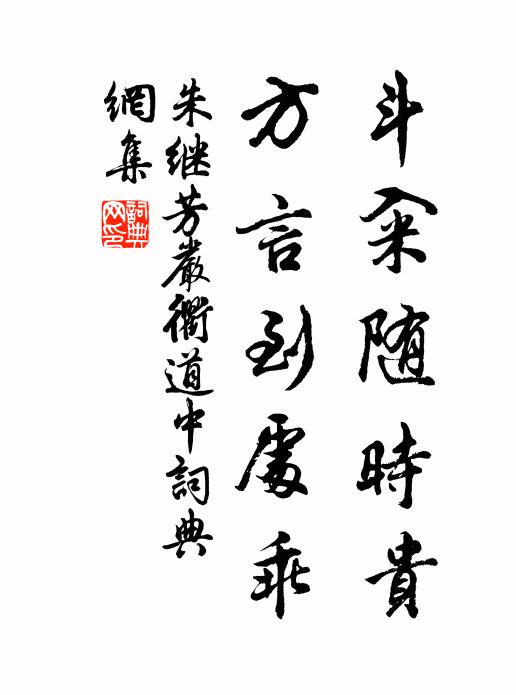 斗籴随時貴
方言到處乖
朱继芳嚴衢道中詞典
網集
詞典
网印